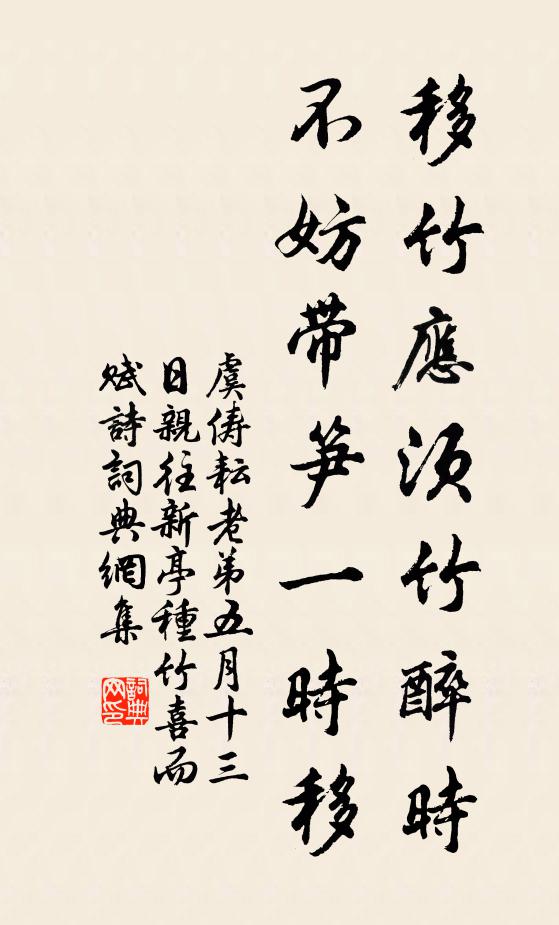 移竹應須竹醉時
不妨帶笋一時移
虞儔耘老弟五月十三
日親往新亭種竹喜而
賦詩詞典網集
詞典
网印